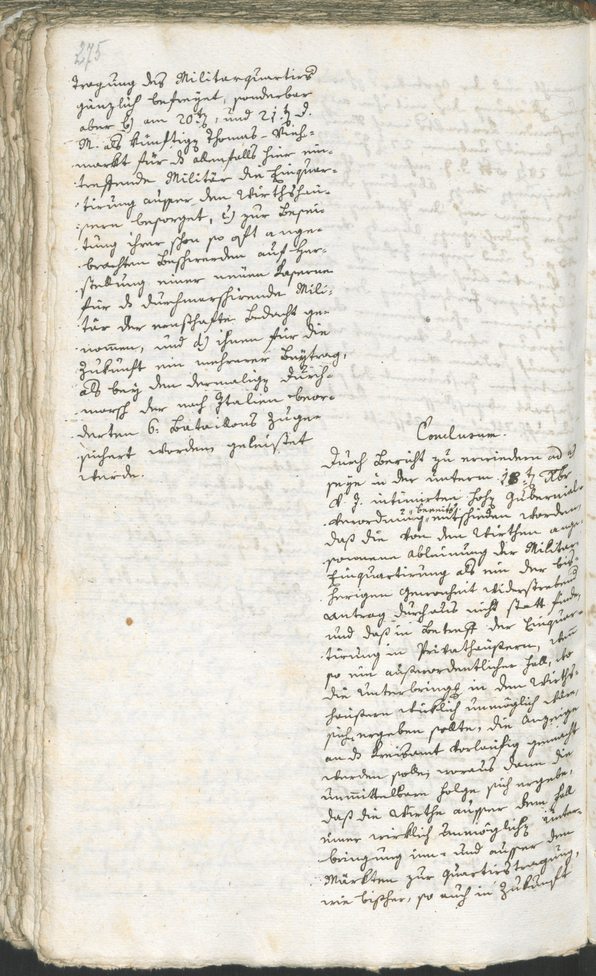 275
tragung des Militarquartirs
gänzlich befreyet, sonderbar
aber b) am 20t, und 21t d.
M. als künftig Thomas-Vieh-
markt für d allenfalls hier ein-
treffende Militär die Einquar-
tirung ausser den Wirthshäu-
sern besorget, c) zur Besei-
tung ihrer schon so oft ange-
brachten Beschwerden auf Her-
stellung einer neuen Caserne
für d durchmarschirende Mili-
tär der ernsthafte Bedacht ge-
nommen, und d) ihnen für die
Zukunft ein mehrerer Beytrag,
als bey den dermalig durch-
marsch der nach Italien beor-
derten 6. Bataillons zuge-
sichert worden geleistet
werde.
Conclusum.
Durch Bericht zu erwiedern ad a)
seye in der unterm 18t Xbr
v. J. intimirten hohen Gubernial-
verordnung bereits entschieden worden,
daß die von den Wirthen ange-
sonnene Ableinung der Militar
Einquartirung als ein der bis-
herigen Gewonheit widerstrebend
Antrag durchaus nicht statt finde,
und daß in Betreff der Einquar-
tirung in Privathäusern, wenn
so ein außerordentlicher Fall, wo
die Unterbringung in den Wirths-
häusern wirklich unmöglich wäre,
sich ergeben sollte, die Anzeige
an d Kreisamt vorläufig gemacht
werden solle, woraus dann die
unmittelbare Folge sich ergebe,
daß die Wirthe ausser dem Fall
einer wirklich unmöglichen Unter-
bringung inn- und ausser den
Märkten zur Quartierstragung,
wie bisher, so auch in Zukunft